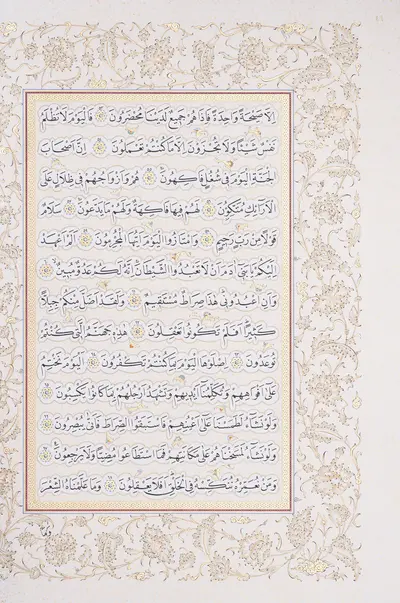 اِلَّا صَيْحَةً وَاحِدَةً فَاِذَا هُمْ جَمِيعٌ لَدَيْنَا مُحْضَرُونَ ۝ فَالْيَوْمَ لَا تُظْلَمُ
نَفْسٌ شَيْئًا وَلَا تُجْزَوْنَ اِلَّا مَا كُنْتُمْ تَعْمَلُونَ ۝ اِنَّ اَصْحَابَ
الْجَنَّةِ الْيَوْمَ فِي شُغُلٍ فَاكِهُونَ ۝ هُمْ وَاَزْوَاجُهُمْ فِي ظِلَالٍ عَلَى
الْاَرَائِكِ مُتَّكِؤُنَ ۝ لَهُمْ فِيهَا فَاكِهَةٌ وَلَهُمْ مَا يَدَّعُونَ ۝ سَلَامٌ
قَوْلًا مِنْ رَبٍّ رَحِيمٍ ۝ وَامْتَازُوا الْيَوْمَ اَيُّهَا الْمُجْرِمُونَ ۝ اَلَمْ اَعْهَدْ
اِلَيْكُمْ يَا بَنِي اٰدَمَ اَنْ لَا تَعْبُدُوا الشَّيْطَانَ اِنَّهُ لَكُمْ عَدُوٌّ مُبِينٌ ۝
وَاَنِ اعْبُدُونِي هٰذَا صِرَاطٌ مُسْتَقِيمٌ ۝ وَلَقَدْ اَضَلَّ مِنْكُمْ جِبِلًّا
كَثِيرًا اَفَلَمْ تَكُونُوا تَعْقِلُونَ ۝ هٰذِهِ جَهَنَّمُ الَّتِي كُنْتُمْ
تُوعَدُونَ ۝ اِصْلَوْهَا الْيَوْمَ بِمَا كُنْتُمْ تَكْفُرُونَ ۝ اَلْيَوْمَ نَخْتِمُ
عَلَى اَفْوَاهِهِمْ وَتُكَلِّمُنَا اَيْدِيهِمْ وَتَشْهَدُ اَرْجُلُهُمْ بِمَا كَانُوا يَكْسِبُونَ ۝
وَلَوْ نَشَاءُ لَطَمَسْنَا عَلَى اَعْيُنِهِمْ فَاسْتَبَقُوا الصِّرَاطَ فَاَنَّى يُبْصِرُونَ ۝
وَلَوْ نَشَاءُ لَمَسَخْنَاهُمْ عَلَى مَكَانَتِهِمْ فَمَا اسْتَطَاعُوا مُضِيًّا وَلَا يَرْجِعُونَ ۝
وَمَنْ نُعَمِّرْهُ نُنَكِّسْهُ فِي الْخَلْقِ اَفَلَا يَعْقِلُونَ ۝ وَمَا عَلَّمْنَاهُ الشِّعْرَ